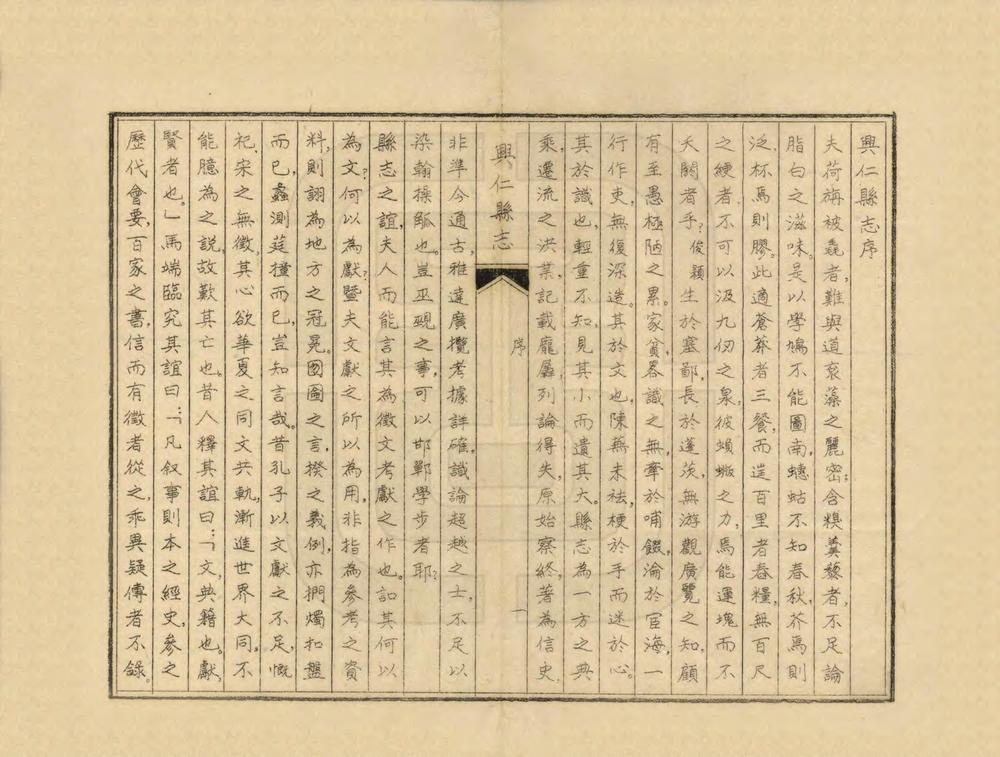 興仁縣志序
夫荷旃被毳者，難與道衮藻之麗密；含糗羹藜者，不足論
脂白之滋味。是以學鳩不能圖南，蟪蛄不知春秋，芥焉則
泛，杯焉則膠。此適蒼莽者三餐，而逞百里者舂糧，無百尺
之綆者，不可以汲九仞之泉，彼蝜蝂之力，焉能運塊而不
夭閼者乎？俊穎生於塞鄙，長於蓬茨，無游觀廣覽之知，顧
有至愚極陋之累。家貧吝識之無，牽於哺餟，淪於宦海，一
行作吏，無復深造。其於文也，陳蕪未袪，梗於手而迷於心。
其於識也，輕重不知，見其小而遺其大。縣志為一方之典
乘，遷流之洪業，記載龐羼，列論得失，原始察終，著為信史，
興仁縣志
序
一
非準今通古，雅達廣攬，考據詳確，識論超越之士，不足以
染翰操觚也。豈巫覡之事，可以邯鄲學步者耶？
縣志之誼，夫人而能言其為徵文考獻之作也。訟其何以
為文？何以為獻？暨夫文獻之所以為用，非指為參考之資
料，則詡為地方之冠冕。囫圇之言，揆之義例，亦捫燭扣盤
而已，蠡測莛撞而已，豈知言哉。昔孔子以文獻之不足，慨
祀、宋之無徵，其心欲華夏之同文共軌，漸進世界大同，不
能臆為之說，故歎其亡也。昔人釋其誼曰：「文，典籍也。獻，
賢者也。」馬端臨究其誼曰：「凡叙事則本之經史，參之
歷代會要，百家之書，信而有徵者從之，乖異疑傳者不錄。